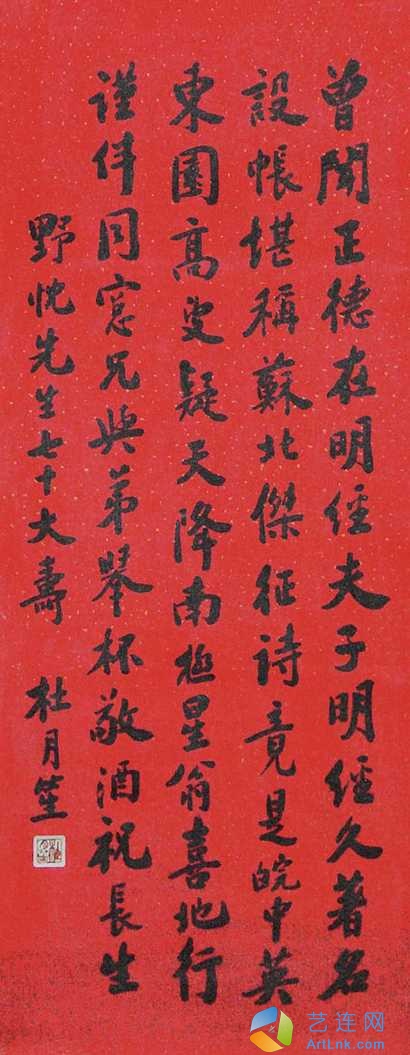 曾聞正德在明經夫子明經久著名
設帳堪稱蘇北傑征詩竟是皖中英
東園高叟疑天降南極星翁喜地行
謹伴同窓兄與弟舉杯敬酒祝長生
野忱先生七十大壽 杜月笙
艺连网
ArtLnk.com